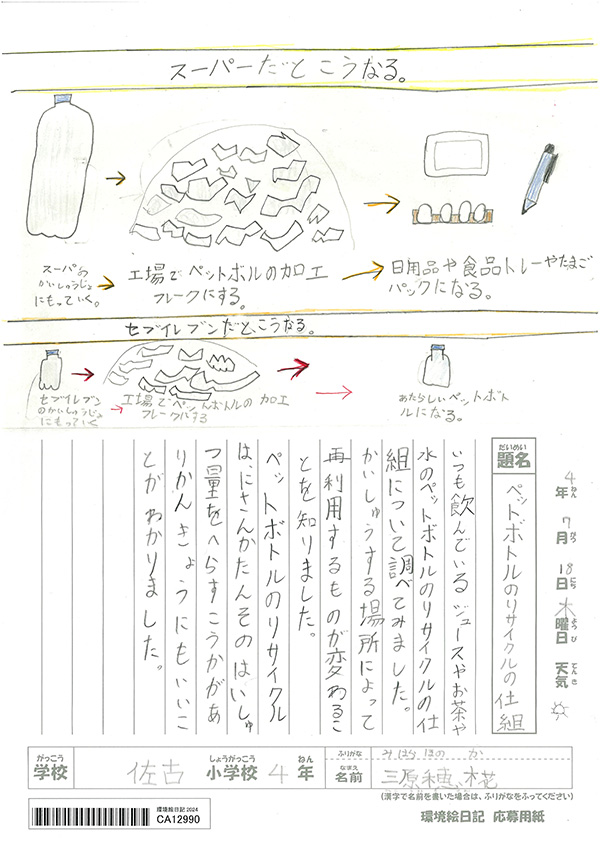 スーパーだと こうなる。
スーパーの
かいしゅうじょ
にもっていく。
工場でペットボルの加工
フレークにする。
日用品や食品トレーやたまご
パックになる。
セブイレブンだと、こうなる。
セブイレブン
のかいしゅうじょ
にもっていく
工場でペットボトルの加工
フレークルする
あたらしいペットボト
ルになる。
4年 7月 18日 木曜日 天気
ねん がつ にち ようび てんき
だいめい
題名 ペットボトルのリサイクルの仕組
いつも飲んでいるジュースやお茶や
水のペットボトルのリサイクルの仕
組について調べてみました。
かいしゅうする場所によって
再利用するものが変わるこ
とを知りました。
ペットボトルのリサイクル
は、にさんかたんそのはいしゅ
つ量をへらすこうかがあ
りかんきょうにもいいこ
とがわかりました。
がっこう しょうがっこう ねん
学校 佐古 小学校 4年
ふりがな みはら ほの か
なまえ
名前 三原穂花
(漢字で名前を書いた場合は、ふりがなをふってください)
環境絵日記 2024
CA12990
環境絵日記 応募用紙